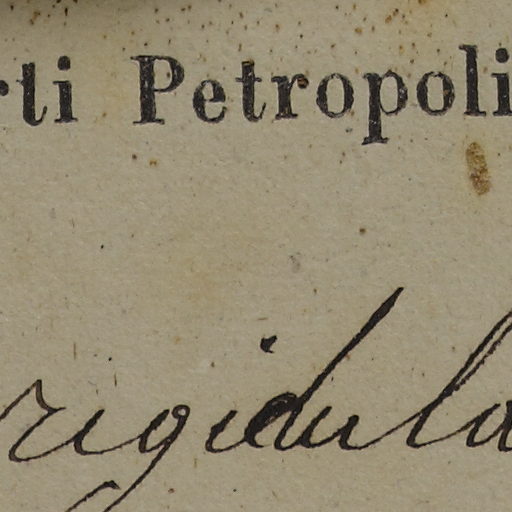 rti Petropoli
rigidula